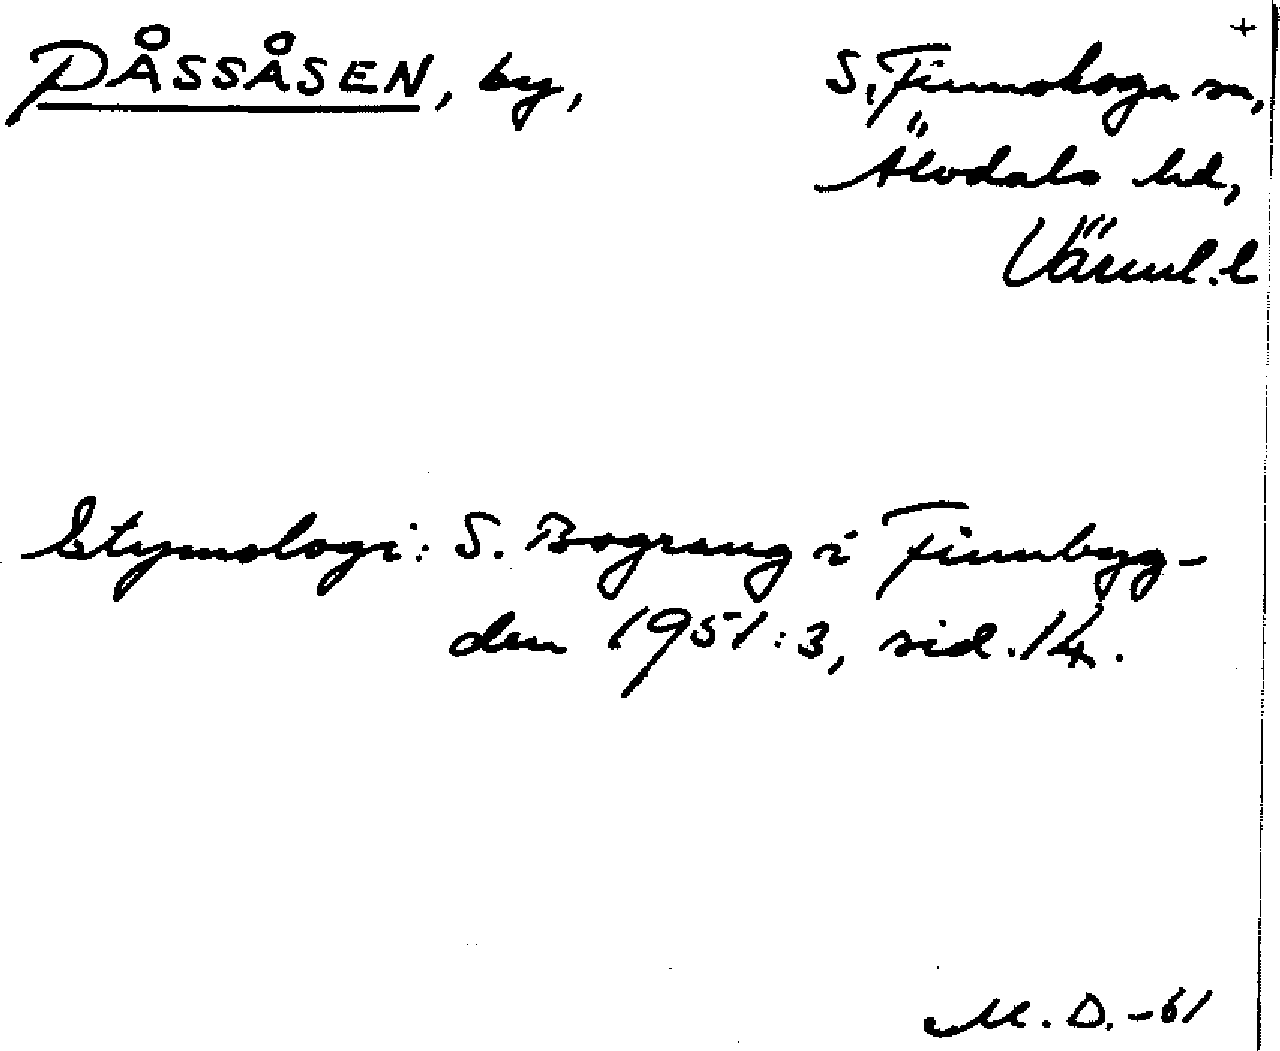 +
PÅSSÅSEN, by, S. Finnskoga sn,
Älvdals hd,
Värml. l
Etymologi: S. Bograng i Finnbyg-
den 1951:3, sid. 14.
M. D. -61